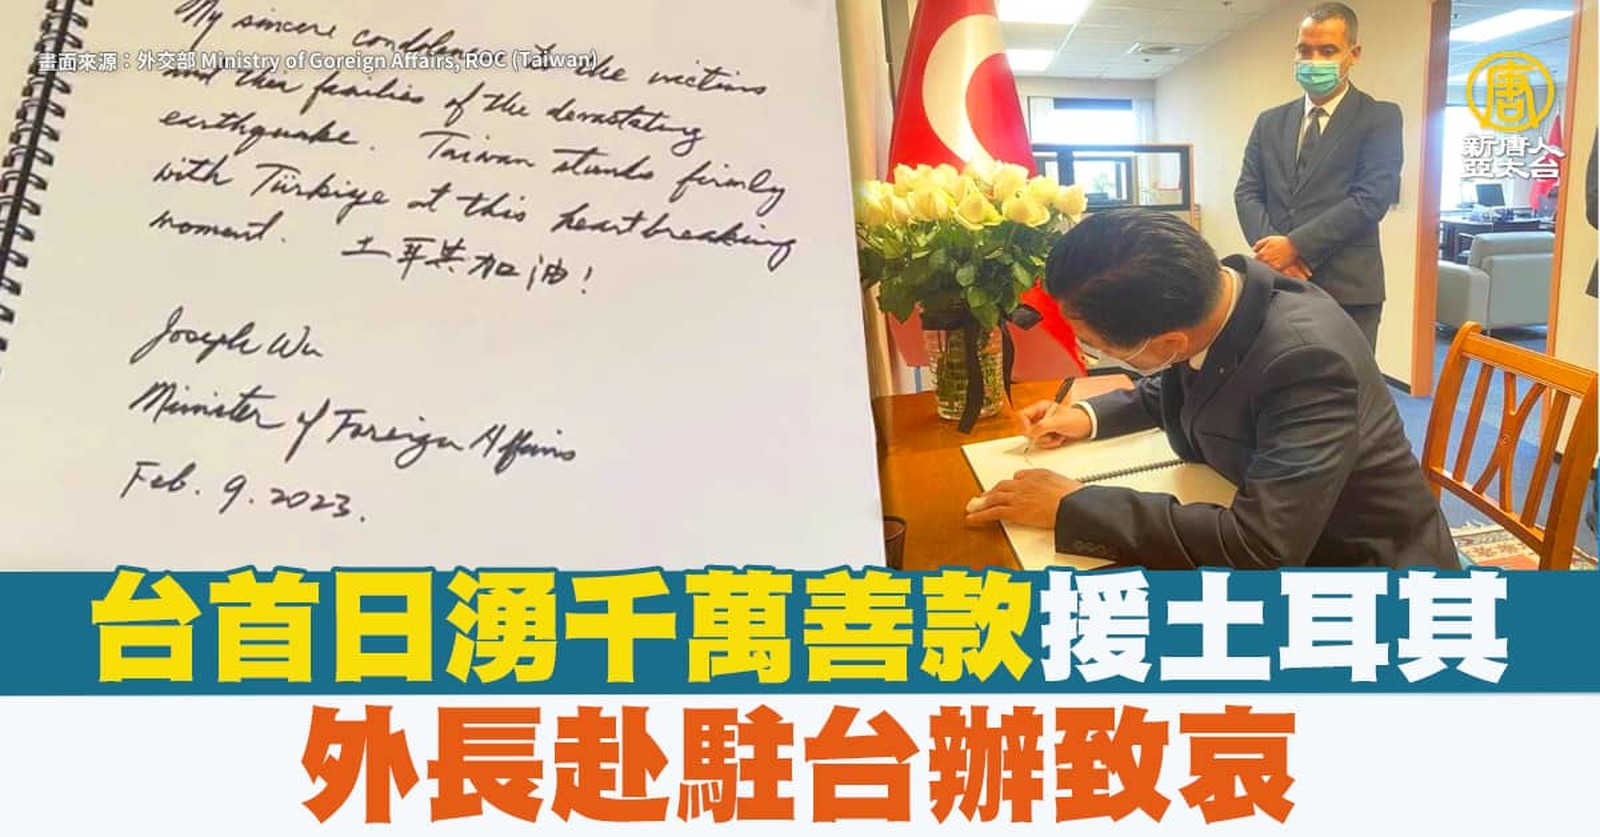 My sincere condolences to the victims
and their families of the devastating
earthquake. Taiwan stands firmly
with Türkiye at this heartbreaking
moment. 土耳其加油!
Joseph Wu
Minister of Foreign Affairs
Feb. 9. 2023.
畫面來源：外交部 Ministry of Goreign Affairs, ROC (Taiwan)
唐
新唐人
亞太台
台首日湧千萬善款援土耳其
外長赴駐台辦致哀